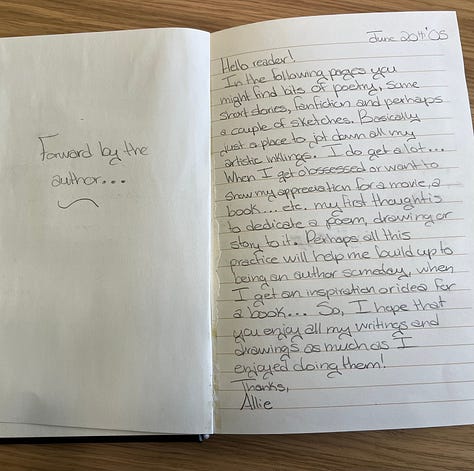 Forward by the
author...
June 20th '05
Hello reader!
In the following pages you
might find bits of poetry, some
short stories, fanfiction and perhaps
a couple of sketches. Basically
just a place to jot down all my
artistic inklings. I do get a lot...
When I get obsessed or want to
show my appreciation for a movie, a
book... etc. my first thought is
to dedicate a poem, drawing or
story to it. Perhaps all this
practice will help me build up to
being an author someday, when
I get an inspiration or idea for
a book... So, I hope that
you enjoy all my writings and
drawings as much as I
enjoyed doing them!
Thanks,
Allie